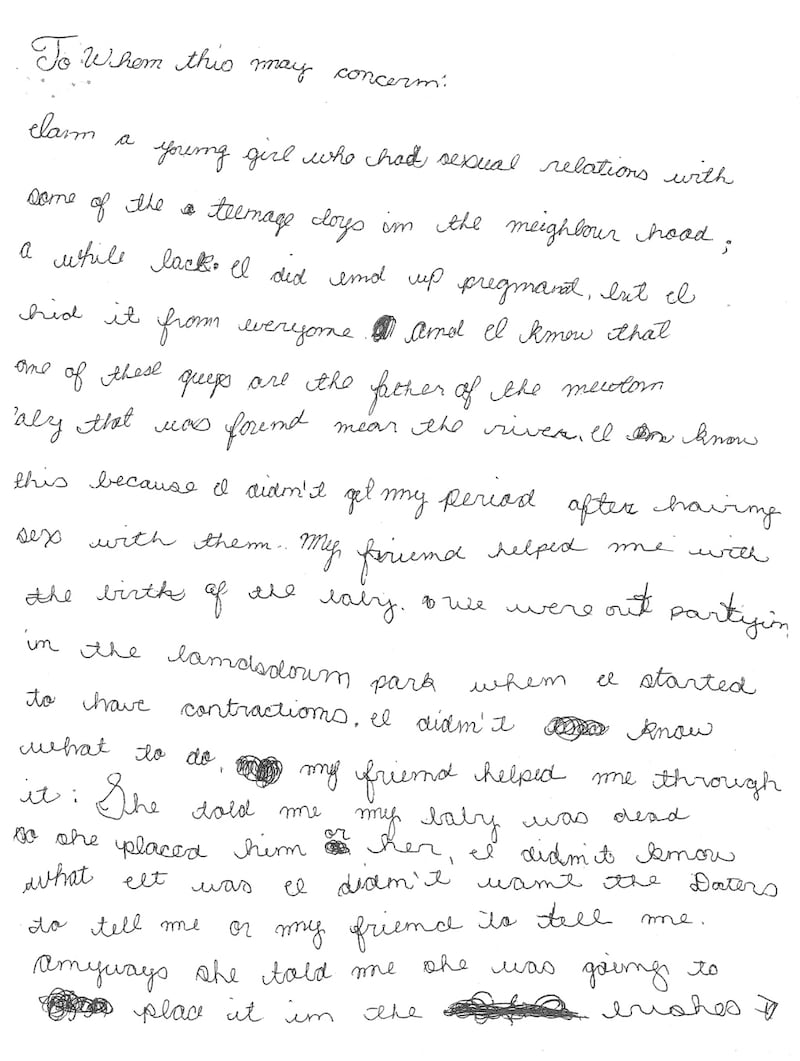 To Whom this may concern:
I am a young girl who had sexual relations with
some of the teenage boys in the neighbour hood;
a while back. I did end up pregnant, but I
hid it from everyone. And I know that
one of these guys are the father of the newborn
baby that was found near the river. I know
this because I didn't get my period after having
sex with them. My friend helped me with
the birth of the baby. We were out partying
in the landsdown park when I started
to have contractions. I didn't know
what to do, my friend helped me through
it; She told me my baby was dead
so she placed him or her, I didn't know
what It was I didn't want the
to tell me or my friend to tell me.
Anyways she told me she was going to
place it in the bushes